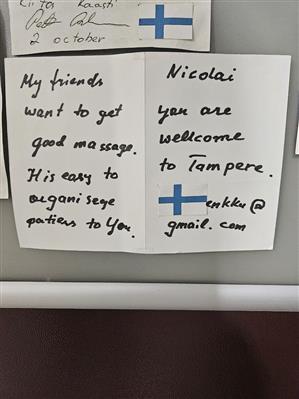 Kiitos Raasti
2 october
My friends
want to get
good massage.
His easy to
organi seye
patiens to You.
Nicolai
you are
wellcome
to Tampere.
enkku@
gmail.com